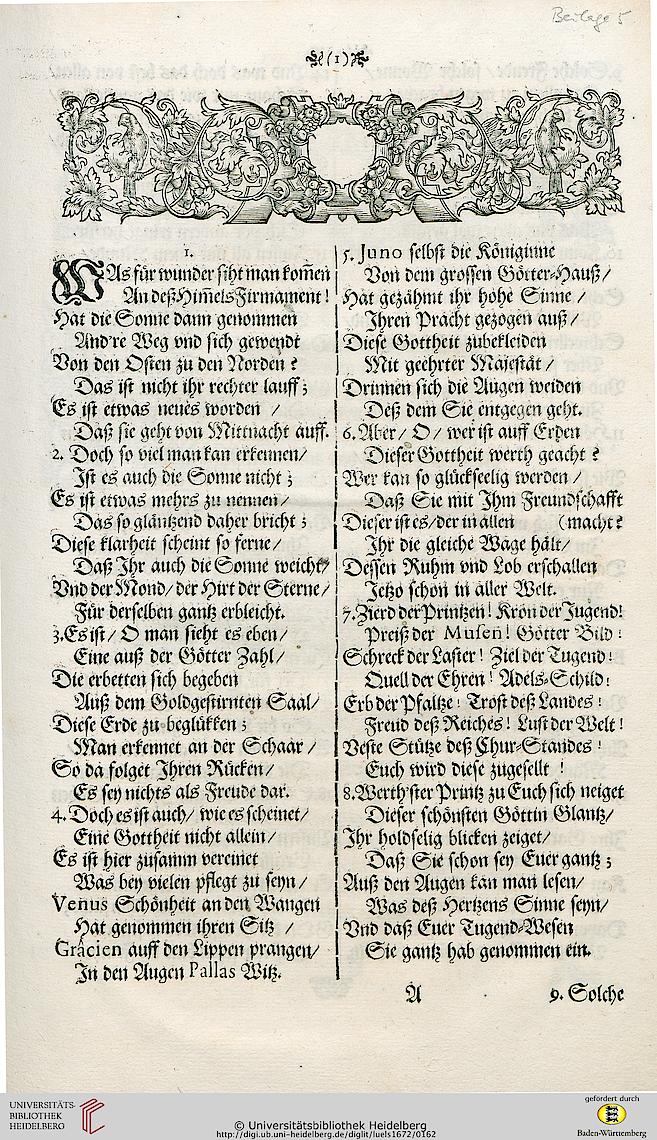 Beilage 5
(1)
1.
WAs für wunder siht man kom̄en
An deß Him̄els Firmament!
Hat die Sonne dann genommen
And're Weg vnd sich gewendt
Von den Osten zu den Norden?
Das ist nicht ihr rechter lauff;
Es ist etwas neues worden /
Daß sie geht von Mittnacht auff.
2. Doch so viel man kan erkennen/
Ist es auch die Sonne nicht;
Es ist etwas mehrs zu nennen/
Das so gläntzend daher bricht;
Diese klarheit scheint so ferne/
Daß Ihr auch die Sonne weicht/
Vnd der Mond/ der Hirt der Sterne/
Für derselben gantz erbleicht.
3. Es ist/ O man sieht es eben/
Eine auß der Götter Zahl/
Die erbetten sich begeben
Auß dem Goldgestirnten Saal/
Diese Erde zu beglükken;
Man erkennet an der Schaar /
So da folget Ihren Rücken/
Es sey nichts als Freude dar.
4. Doch es ist auch/ wie es scheinet/
Eine Gottheit nicht allein/
Es ist hier zusamm vereinet
Was bey vielen pflegt zu seyn/
Venus Schönheit an den Wangen
Hat genommen ihren Sitz /
Gracien auff den Lippen prangen/
In den Augen Pallas Witz.
5. Juno selbst die Königinne
Von dem grossen Götter-Hauß/
Hat gezähmt ihr hohe Sinne /
Ihren Pracht gezogen auß/
Diese Gottheit zubekleiden
Mit geehrter Majestät /
Drinnen sich die Augen weiden
Deß dem Sie entgegen geht.
6. Aber/ O/ wer ist auff Erden
Dieser Gottheit werth geacht?
Wer kan so glückseelig werden /
Daß Sie mit Ihm Freundschafft
Dieser ist es/ der in allen (macht?
Ihr die gleiche Wage hält/
Dessen Ruhm vnd Lob erschallen
Jetzo schon in aller Welt.
7. Zierd der Printzen! Kron der Jugend!
Preiß der Musen! Götter Bild!
Schreck der Laster! Ziel der Tugend!
Quell der Ehren! Adels-Schild!
Erb der Pfaltze! Trost deß Landes!
Freud deß Reiches! Lust der Welt!
Veste Stütze deß Chur-Standes!
Euch wird diese zugesellt!
8. Werthster Printz zu Euch sich neiget
Dieser schönsten Göttin Glantz/
Ihr holdselig blicken zeiget/
Daß Sie schon sey Euer gantz;
Auß den Augen kan man lesen/
Was deß Hertzens Sinne seyn/
Vnd daß Euer Tugend-Wesen
Sie gantz hab genommen ein.
A
9. Solche
UNIVERSITÄTS-
BIBLIOTHEK
HEIDELBERG
© Universitätsbibliothek Heidelberg
http://digi.ub.uni-heidelberg.de/diglit/luels1672/0162
gefördert durch
Baden-Württemberg